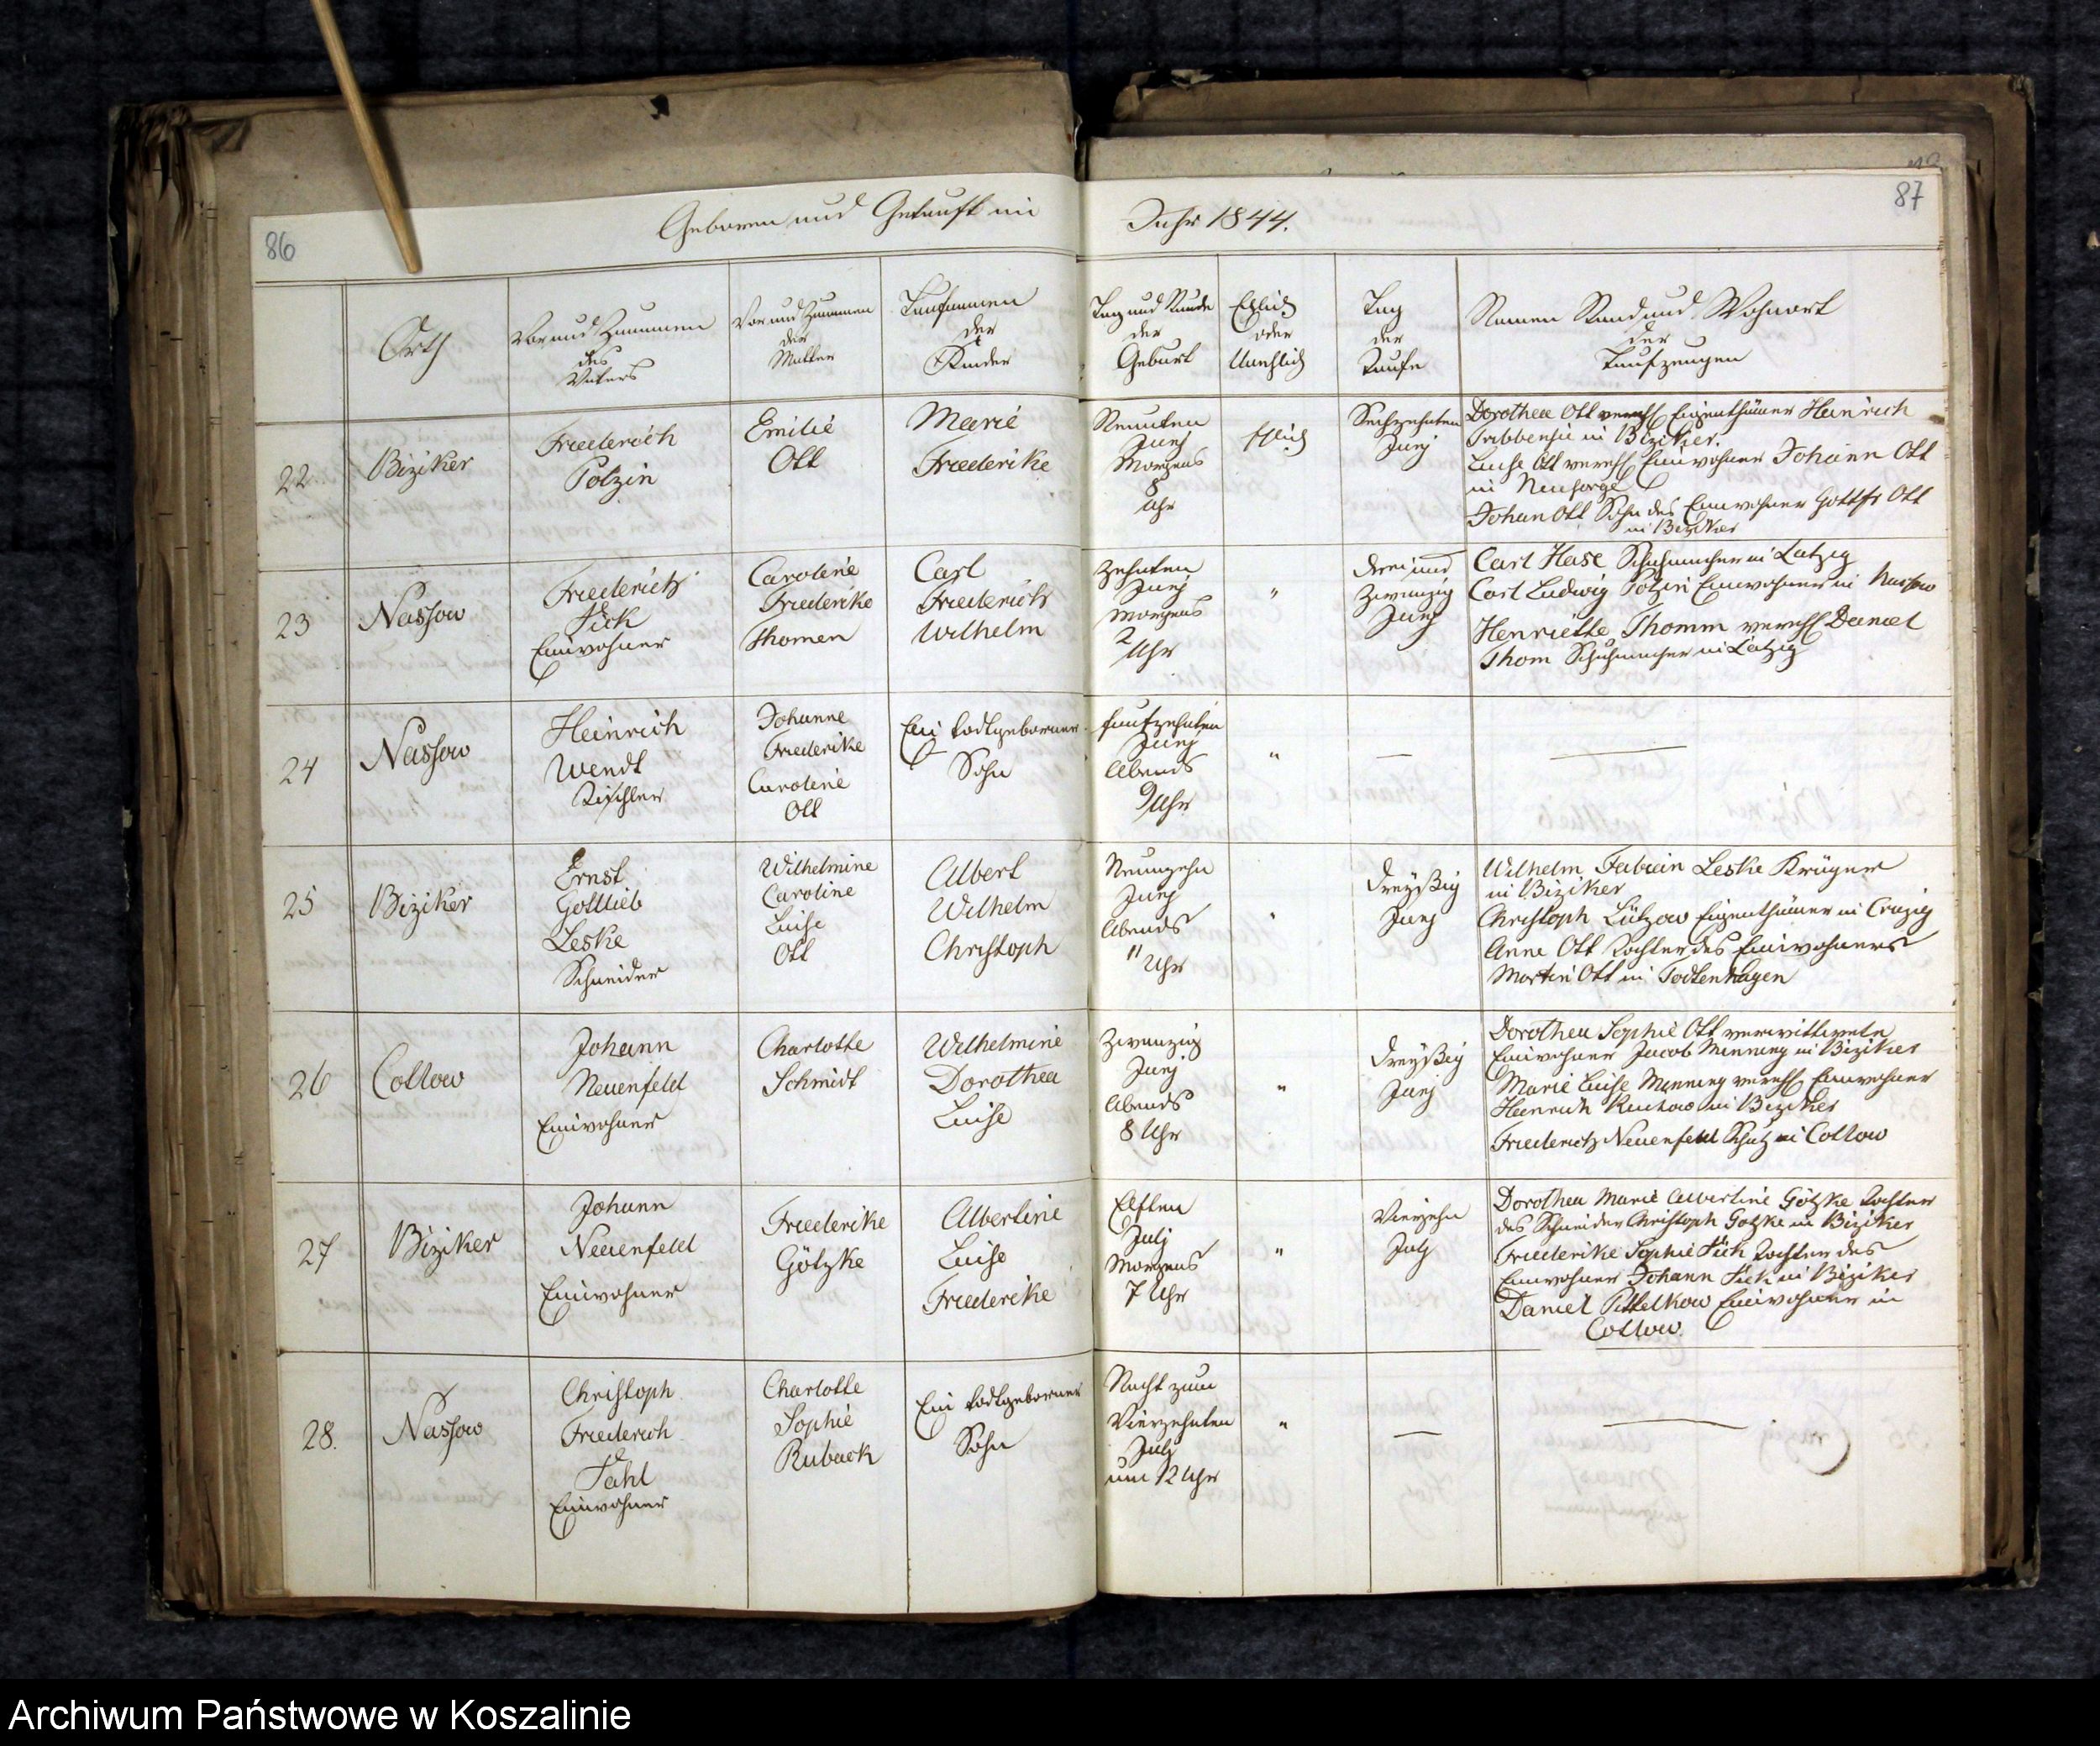 86
Geboren und Getauft im
Jahr 1844.
87
Orth
Vor und Zunamen
des
Vaters
Vor und Zunamen
der
Mutter
Taufnamen
der
Kinder
Tag und Stunde
der
Geburt
Ehlich
oder
Unehlich
Tag
der
Taufe
Namen Stand und Wohnort
der
Taufzeugen
22
Biziker
Friederich
Polzin
Emilie
Ott
Marie
Friederike
Neunten
Junj
Morgens
8
Uhr
Ehlich
Sechzehnten
Junj
Dorothea Ott verehl Eigenthümer Heinrich
in Biziker.
Luise Ott verehl Einwohner Johann Ott
in Neusorge
Johan Ott Sohn des Einwohner Gottfr Ott
in Biziker
23
Nassow
Friederich
Fick
Einwohner
Caroline
Friederike
Thomen
Carl
Friederich
Wilhelm
Zehnten
Junj
Morgens
2
Uhr
"
Drei und
Zwanzig
Junj
Carl Hase Schuhmacher in Latzig
Carl Ludwig Polzin Einwohner in Nassow
Henriette Thomm verehl Daniel
Thom Schuhmacher in Latzig
24
Nassow
Heinrich
Wendt
Tischler
Johanne
Friederike
Caroline
Ott
Ein todtgeborner
Sohn
funfzehnten
Junj
Abends
9 Uhr
"
—
—
25
Biziker
Ernst
Gottlieb
Leske
Schneider
Wilhelmine
Caroline
Luise
Ott
Albert
Wilhelm
Christoph
Neunzehn
Junj
Abends
11
Uhr
"
Dreyßig
Junj
Wilhelm Fabian Leske Krüger
in Biziker
Christoph Lützow Eigenthümer in Crazig
Anne Ott Tochter des Einwohners
Martin Ott in Todtenhagen
26
Cottow
Johann
Neuenfeld
Einwohner
Charlotte
Schmidt
Wilhelmine
Dorothea
Luise
Zwanzig
Junj
Abends
8 Uhr
"
Dreyßig
Junj
Dorothea Sophie Ott verwittwete
Einwohner Jacob Minning in Biziker
Marie Luise Minning verehl Einwohner
Heinrich in Biziker
Friederich Neuenfeld Schulz in Cottow
27
Biziker
Johann
Neuenfeld
Einwohner
Friederike
Götzke
Albertine
Luise
Friederike
Elften
Julj
Morgens
7 Uhr
"
Vierzehn
Julj
Dorothea Marie Albertine Götzke Tochter
des Schneider Christoph Gotzke in Biziker
Friederike Sophie Fick Tochter des
Einwohner Johann Fick in Biziker
Daniel Pittelkow Einwohner in
Cottow.
28.
Nassow
Christoph
Friederich
Fahl
Einwohner
Charlotte
Sophie
Ruback
Ein todtgeborner
Sohn
Nacht zum
Vierzehnten
Julj
um 12 Uhr
"
—
—
Archiwum Państwowe w Koszalinie